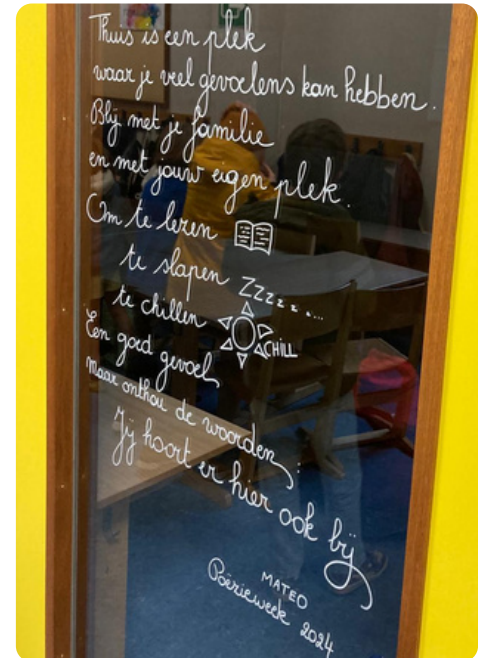 Thuis is een plek
waar je veel gevoelens kan hebben.
Blij met je familie
en met jouw eigen plek.
Om te lezen
te slapen ZZZzz z...
te chillen
CHILL
Een goed gevoel
Maar onthou de woorden:
Jij hoort er hier ook bij
MATEO
Poëzieweek 2024